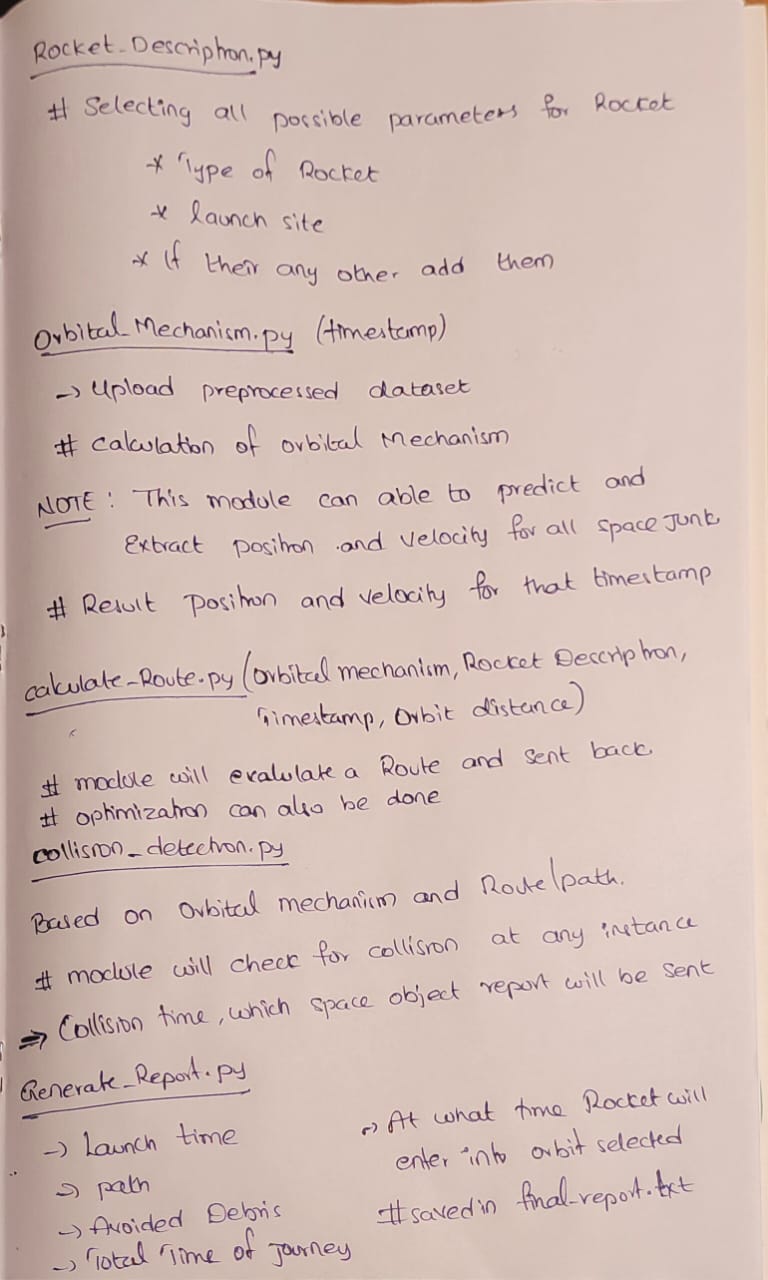 Rocket_Description.py
# Selecting all possible parameters for Rocket
* Type of Rocket
* launch site
* If their any other add them
Orbital_Mechanism.py (timestamp)
→ Upload preprocessed dataset
# Calculation of orbital Mechanism
NOTE : This module can able to predict and
Extract position and velocity for all space Junk
# Result position and velocity for that timestamp
calculate_Route.py (Orbital mechanism, Rocket Description,
Timestamp, Orbit distance)
# module will evalulate a Route and sent back
# optimization can also be done
collision_detection.py
Based on Orbital mechanism and Route/path.
# module will check for collision at any instance
⇒ Collision time, which space object report will be sent
Generate_Report.py
→ Launch time
→ path
→ Avoided Debris
→ Total Time of Journey
→ At what time Rocket will
enter into orbit selected
# saved in final_report.txt